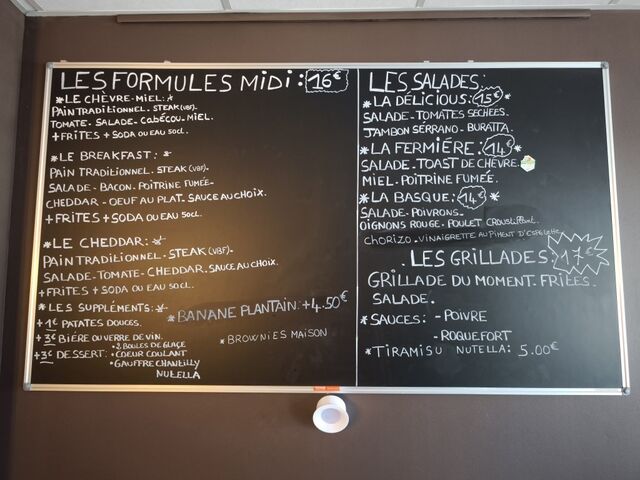 LES FORMULES MIDI: 16€
*LE CHÈVRE-MIEL:*
PAIN TRADITIONNEL. STEAK (VBF).
TOMATE. SALADE. CABÉCOU. MIEL.
+FRITES + SODA OU EAU 50CL.
*LE BREAKFAST: *
PAIN TRADITIONNEL. STEAK (VBF)
SALADE. BACON. POITRINE FUMÉE.
CHEDDAR - OEUF AU PLAT. SAUCE AU CHOIX.
+FRITES + SODA OU EAU 50CL.
*LE CHEDDAR: *
PAIN TRADITIONNEL. STEAK (VBF).
SALADE-TOMATE-CHEDDAR. SAUCE AU CHOIX.
+FRITES + SODA OU EAU 50CL.
*LES SUPPLÉMENTS: *
+1€ PATATES DOUCES.
+3€ BIÈRE OU VERRE DE VIN.
+3€ DESSERT: • 2 BOULES DE GLACE
• COEUR COULANT
• GAUFFRE CHANTILLY
NUTELLA
*BANANE PLANTAIN: +4.50€
*BROWNIES MAISON
LES SALADES:
*LA DÉLICIOUS: 15€ *
SALADE - TOMATES SECHÉES.
JAMBON SERRANO. BURATTA.
*LA FERMIÈRE: 14€ *
SALADE. TOAST DE CHÈVRE.
MIEL. POITRINE FUMÉE.
*LA BASQUE: 14€ *
SALADE. POIVRONS.
OIGNONS ROUGE. POULET CROUSTILLANT.
CHORIZO. VINAIGRETTE AU PIMENT D'ESPELETTE
LES GRILLADES: 17€
GRILLADE DU MOMENT. FRITES.
SALADE.
*SAUCES: - POIVRE
- ROQUEFORT
*TIRAMISU NUTELLA: 5.00€